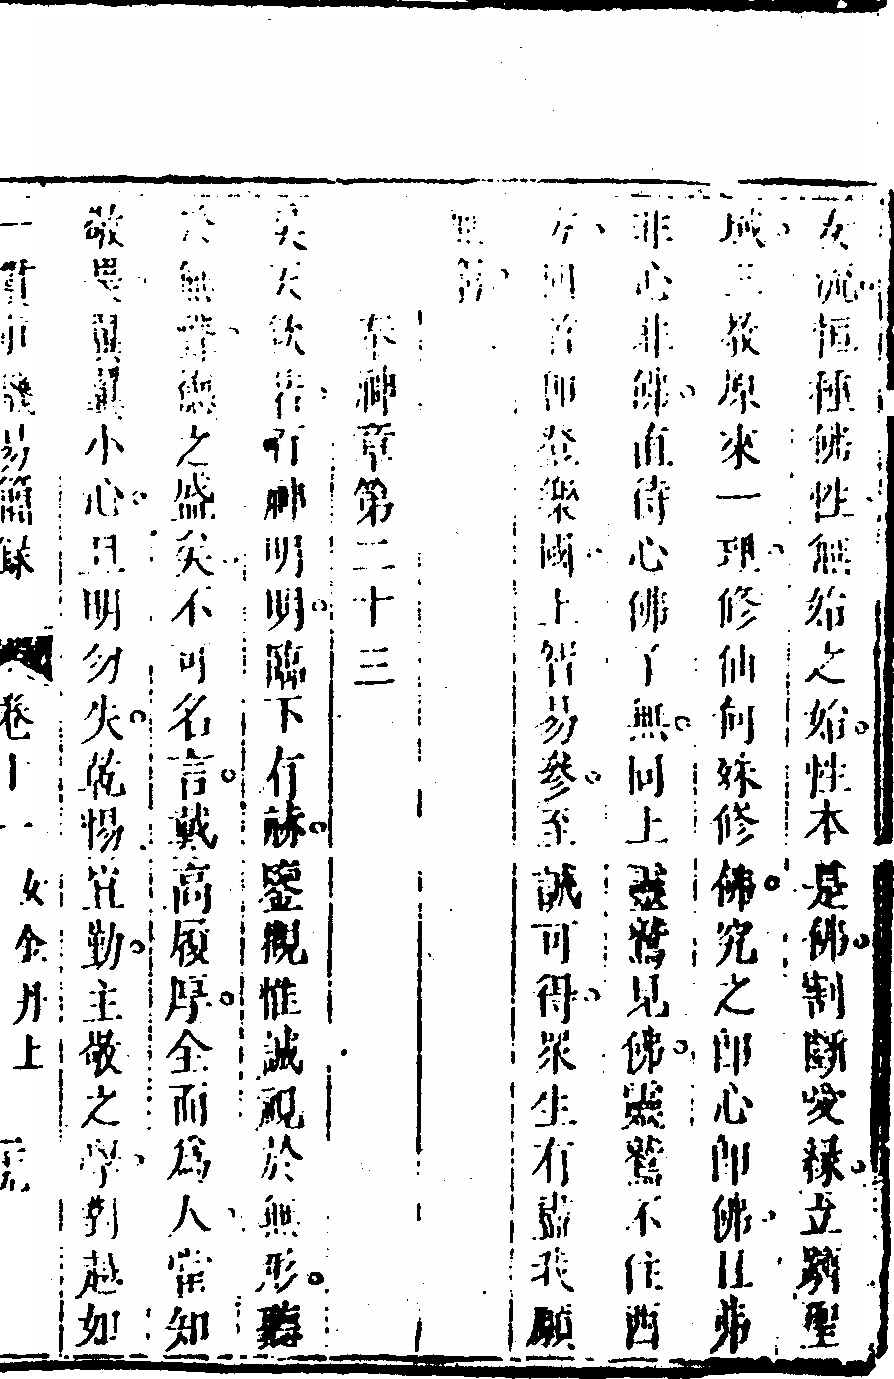 女流。恒種佛性。無始之始。性本是佛。割斷愛緣。立躋聖
域。三教原來一理。修仙何殊修佛。究之即心即佛。且弗
非心非佛。直待心佛了無。向上靈鷲見佛。靈鷲不住西
方。回首即登樂國。上智易參。至誠可得。眾生有盡我願
無窮。
奉神章第二十三
昊天欽若。有神明明。臨下有赫。鑒觀惟誠。視於無形。聽
於無聲。德之盛矣。不可名言。戴高履厚。全而為人。當知
敬畏翼翼小心。旦明勿失。乾惕宜勤。主敬之學。對越如
一貫甲 易簡錄 卷十一 女金丹上